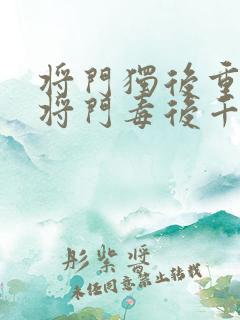 將門獨後重
將門毒後千
彤紫醬
未經同意禁止轉載